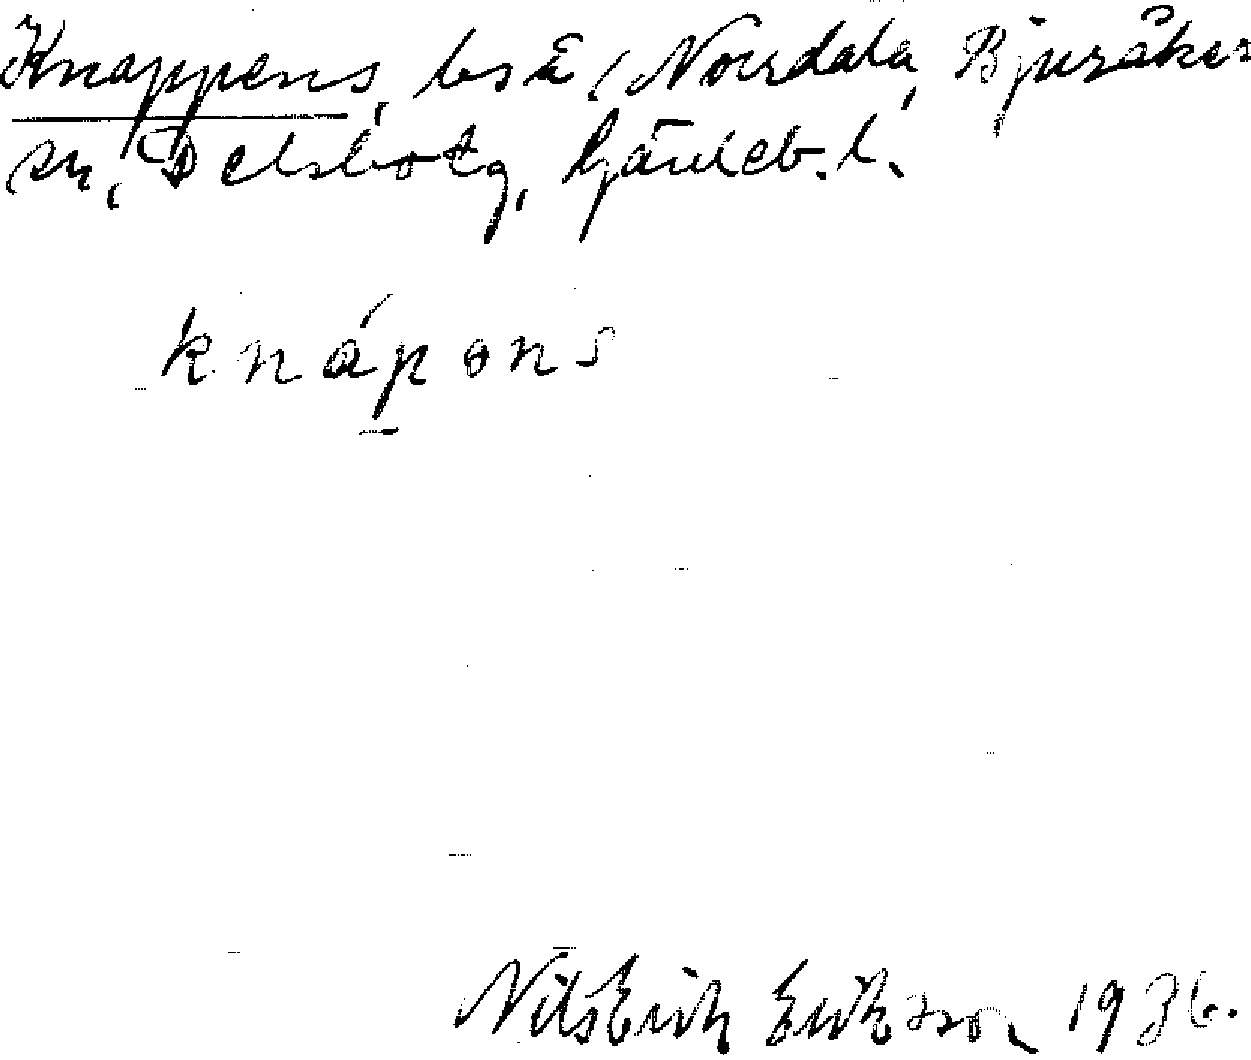 Knappens, bs å, Norrdala, Bjuråker
sn, Delsbo tg, Gävleb. l.
knápəns
Nils Erik Eriksson 1936.